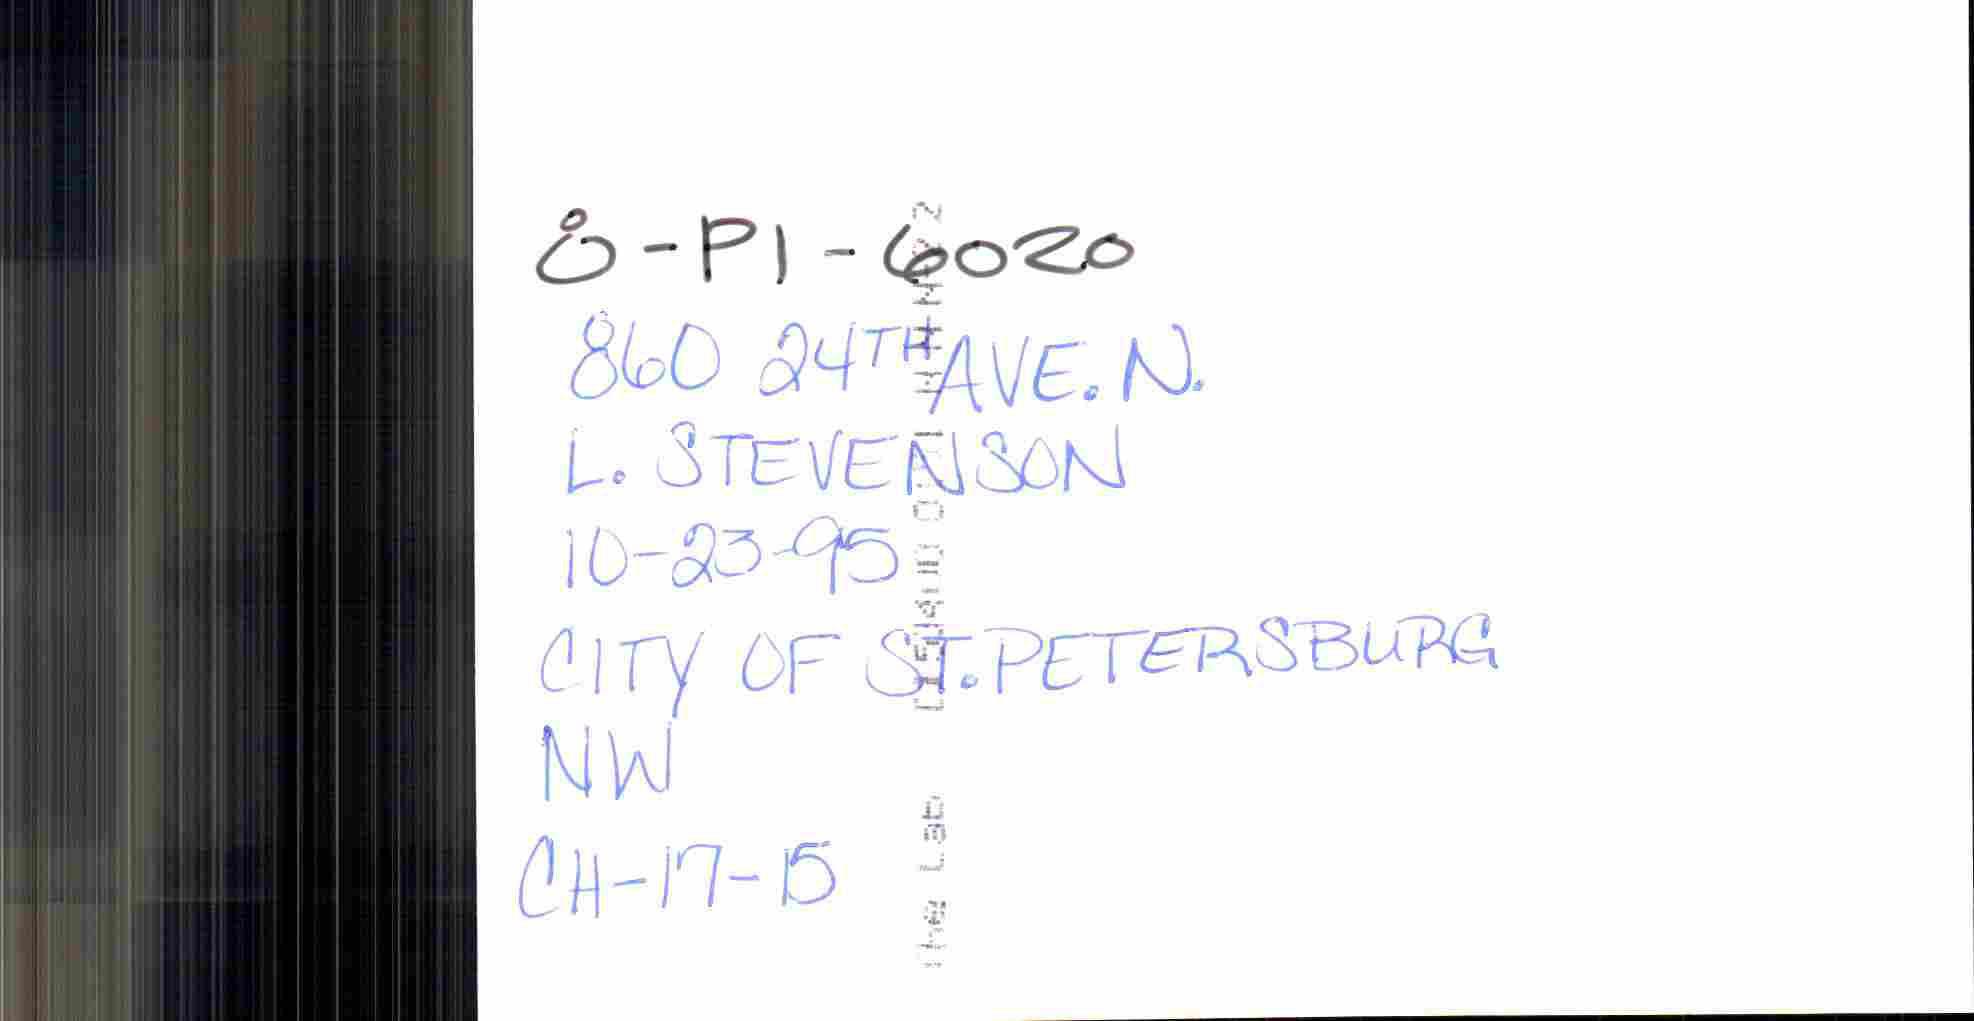 8-PI-6020
860 24TH AVE. N.
L. STEVENSON
10-23-95
CITY OF ST. PETERSBURG
NW
CH-17-15